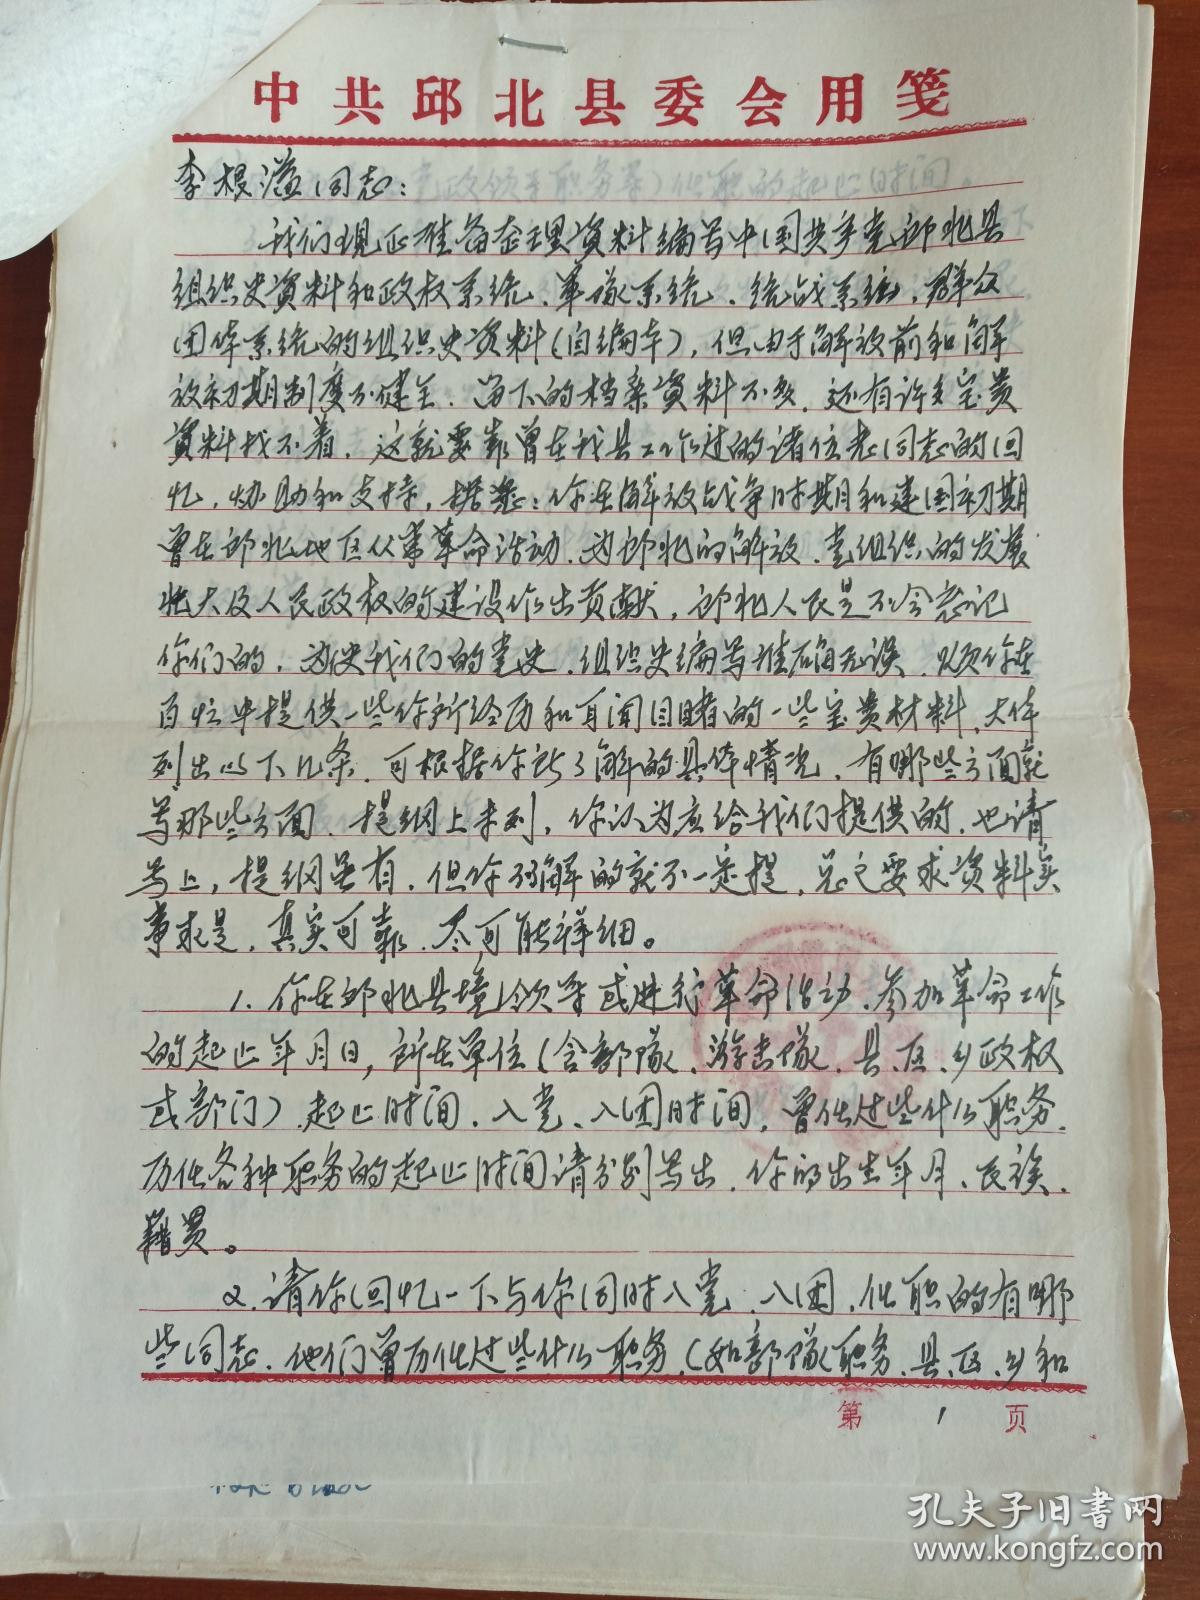 中共邱北县委会用笺
李根溢同志：
我们现正准备整理资料编写中国共产党邱北县
组织史资料和政权系统、军队系统、统战系统、群众
团体系统的组织史资料(自编本)，但由于解放前和解
放初期制度不健全，留下的档案资料不多，还有许多宝贵
资料找不着，这就要靠曾在我县工作过的诸位老同志的回
忆，协助和支持，据悉：你在解放战争时期和建国初期
曾在邱北地区从事革命活动，为邱北的解放、党组织的发展
壮大及人民政权的建设作出贡献，邱北人民是不会忘记
你们的，为使我们的党史、组织史编写准确无误，烦你在
百忙中提供一些你所经历和耳闻目睹的一些宝贵材料，大体
列出以下几条，可根据你所了解的具体情况，有哪些方面就
写那些方面，提纲上未列，你认为应给我们提供的，也请
写上，提纲虽有，但你不了解的就不一定提，总之要求资料实
事求是，真实可靠，尽可能详细。
1. 你在邱北县境领导或进行革命活动、参加革命工作
的起止年月日，所在单位(含部队、游击队、县、区、乡政权
或部门)起止时间，入党、入团时间，曾任过些什么职务，
历任各种职务的起止时间请分别写出，你的出生年月、民族、
籍贯。
2. 请你回忆一下与你同时入党、入团，任职的有哪
些同志，他们曾历任过些什么职务，(如部队职务、县、区、乡和
第 1 页
孔夫子旧书网
www.kongfz.com